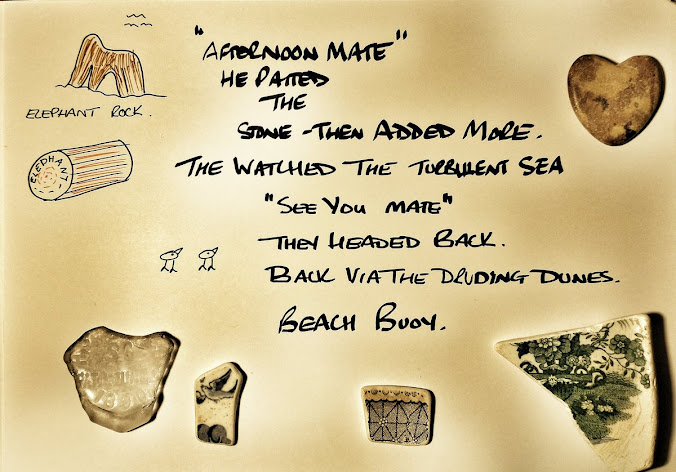 "AFTERNOON MATE"
HE PATTED
THE
STONE - THEN ADDED MORE.
THE WATCHED THE TURBULENT SEA
"SEE YOU MATE"
THEY HEADED BACK.
BACK VIA THE DRUDING DUNES.
BEACH BUOY.
ELEPHANT ROCK.
ELEPHANT